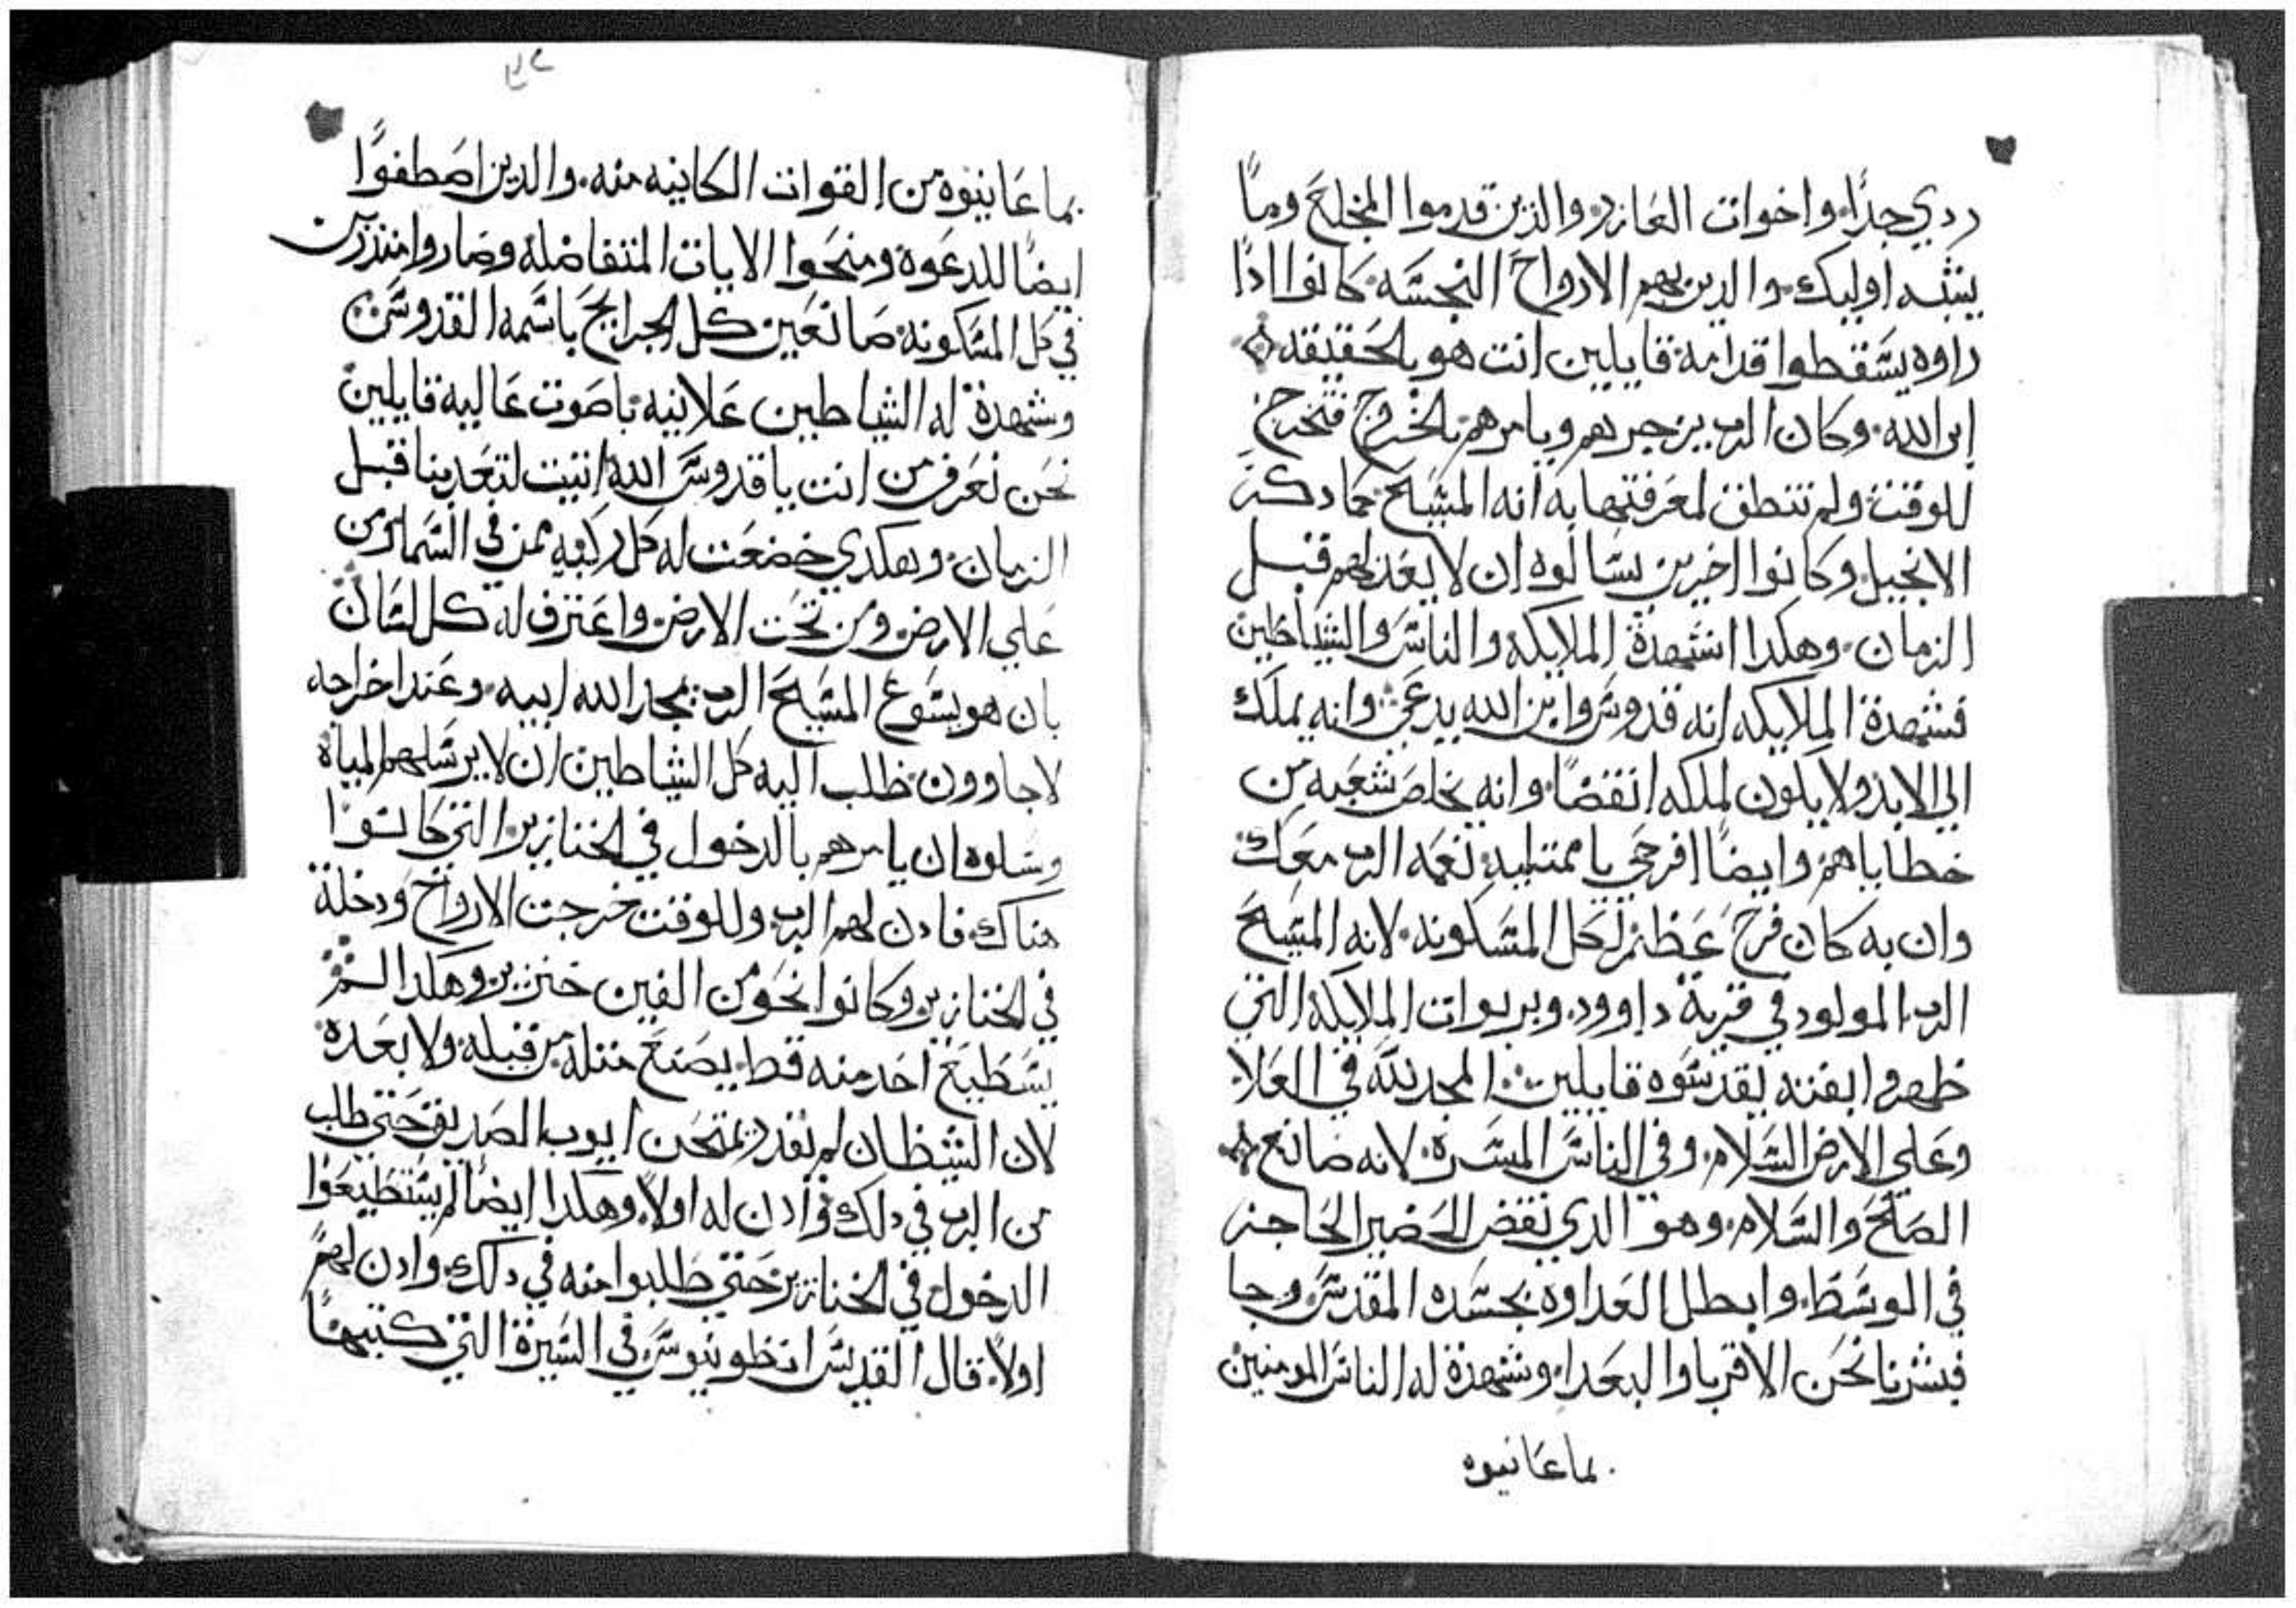 ردي جدًا، واخوات العازر، والذين قدموا المخلع وما
يشبه اوليك. والدين بهم الارواح النجسه كانوا ادا
راوه يسقطوا قدامه قايلين انت هو بالحقيقه
ابن الله. وكان الرب يزجرهم ويامرهم بالخروج فتخرج
للوقت ولم تنطق لمعرفتها به انه المسيح كما دكر
الانجيل وكانوا اخرين يسالوه ان لا يعدبهم قبل
الزمان. وهكدا استهدة الملايكه والناس والشياطين
فشهدة الملايكه انه قدوس وابن الله يدعي وانه يملك
الي الابد ولا يكون لملكه انقضا وانه يخلص شعبه من
خطاياهم وايضا افرحي يا ممتليه نعمه الرب معك
وان به كان فرح عظيم لكل المسكونه. لانه المسيح
الرب المولود في قرية داوود. وبربوات الملايكة التي
ظهروا بغته يقدسوه قايلين: المجد لله في العلا
وعلي الارض السلام. وفي الناس المسرة. لانه صانع
الصلح والسلام وهو الدي نقض الحضير الحاجز
في الوسط. وابطل العداوه بجسده المقدس وجا
فبشرنا نحن الاقربا والبعدا. وشهدة له الناس المومنين
بما عانيوه
بما عاينوه من القوات الكاينه منه. والدين اصطفوا
ايضا للدعوة ومنحوا الايات المتفاضلة وصاروا منذرين
في كل المسكونة صانعين كل الجرايح باسمه القدوس
وشهدة له الشياطين علانيه باصوت عاليه قايلين
نحن نعرف من انت يا قدوس الله اتيت لتعدبنا قبل
الزمان. وهكدي خضعت له كل ركبه ممن في السما ومن
علي الارض ومن تحت الارض واعترف له كل لسان
بان هو يسوع المسيح الرب بمجد الله ابيه. وعند اخراجه
لاجاوون طلب اليه كل الشياطين ان لا يرسلهم المياه
وسلوه ان يامرهم بالدخول في الخنازير التي كانوا
هناك فادن لهم الرب. وللوقت خرجت الارواح ودخلة
في الخنازير وكانوا نحو من الفين خنزير وهكدا لم
يستطيع احد منه قط. يصنع مثله من قبله ولا بعده
لان الشيطان لم يقدر يمتحن ايوب الصديق حتي طلب
من الرب في دلك وادن له اولا وهكدا ايضا لم يستطيعوا
الدخول في الخنازير حتي طلبوا منه في دلك. وادن لهم
اولا. قال القديس انطونيوس في السيرة التي كتبها